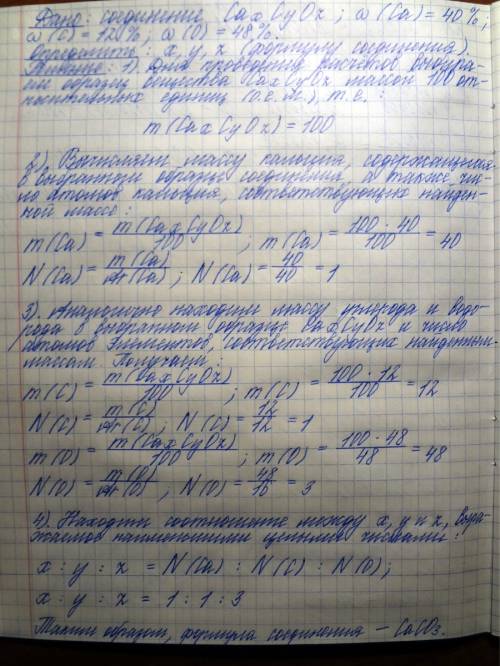 Дано: соединение CaxCyOz; ω(Ca)=40%;
ω(C)=12%; ω(O)=48%.
Определить: x, y, z (формулу соединения).
Решение: 1). Для проведения расчётов выбира-
ем образец вещества CaxCyOz массой 100 от-
носительных единиц (о.е.м.), т.е.:
m(CaxCyOz)=100
2). Вычисляем массу кальция, содержащуюся
в выбранном образце соединения, а также чис-
ло атомов кальция, соответствующих найден-
ной массе:
m(Ca)= m(CaxCyOz)/100 ; m(Ca)= 100·40/100 =40
N(Ca)= m(Ca)/Ar(Ca) ; N(Ca)= 40/40 =1
3). Аналогично находим массу углерода и водо-
рода в выбранном образце CaxCyOz и число
атомов элементов, соответствующих найденным
массам. Получаем:
m(C)= m(CaxCyOz)/100 ; m(C)= 100·12/100 =12
N(C)= m(C)/Ar(C) ; N(C)= 12/12 =1
m(O)= m(CaxCyOz)/100 ; m(O)= 100·48/48 =48
N(O)= m(O)/Ar(O) ; N(O)= 48/16 =3
4). Находим соотношение между x, y и z, выра-
жаемое наименьшими целыми числами:
x : y : z = N(Ca) : N(C) : N(O);
x : y : z = 1 : 1 : 3
Таким образом, формула соединения – CaCO3.